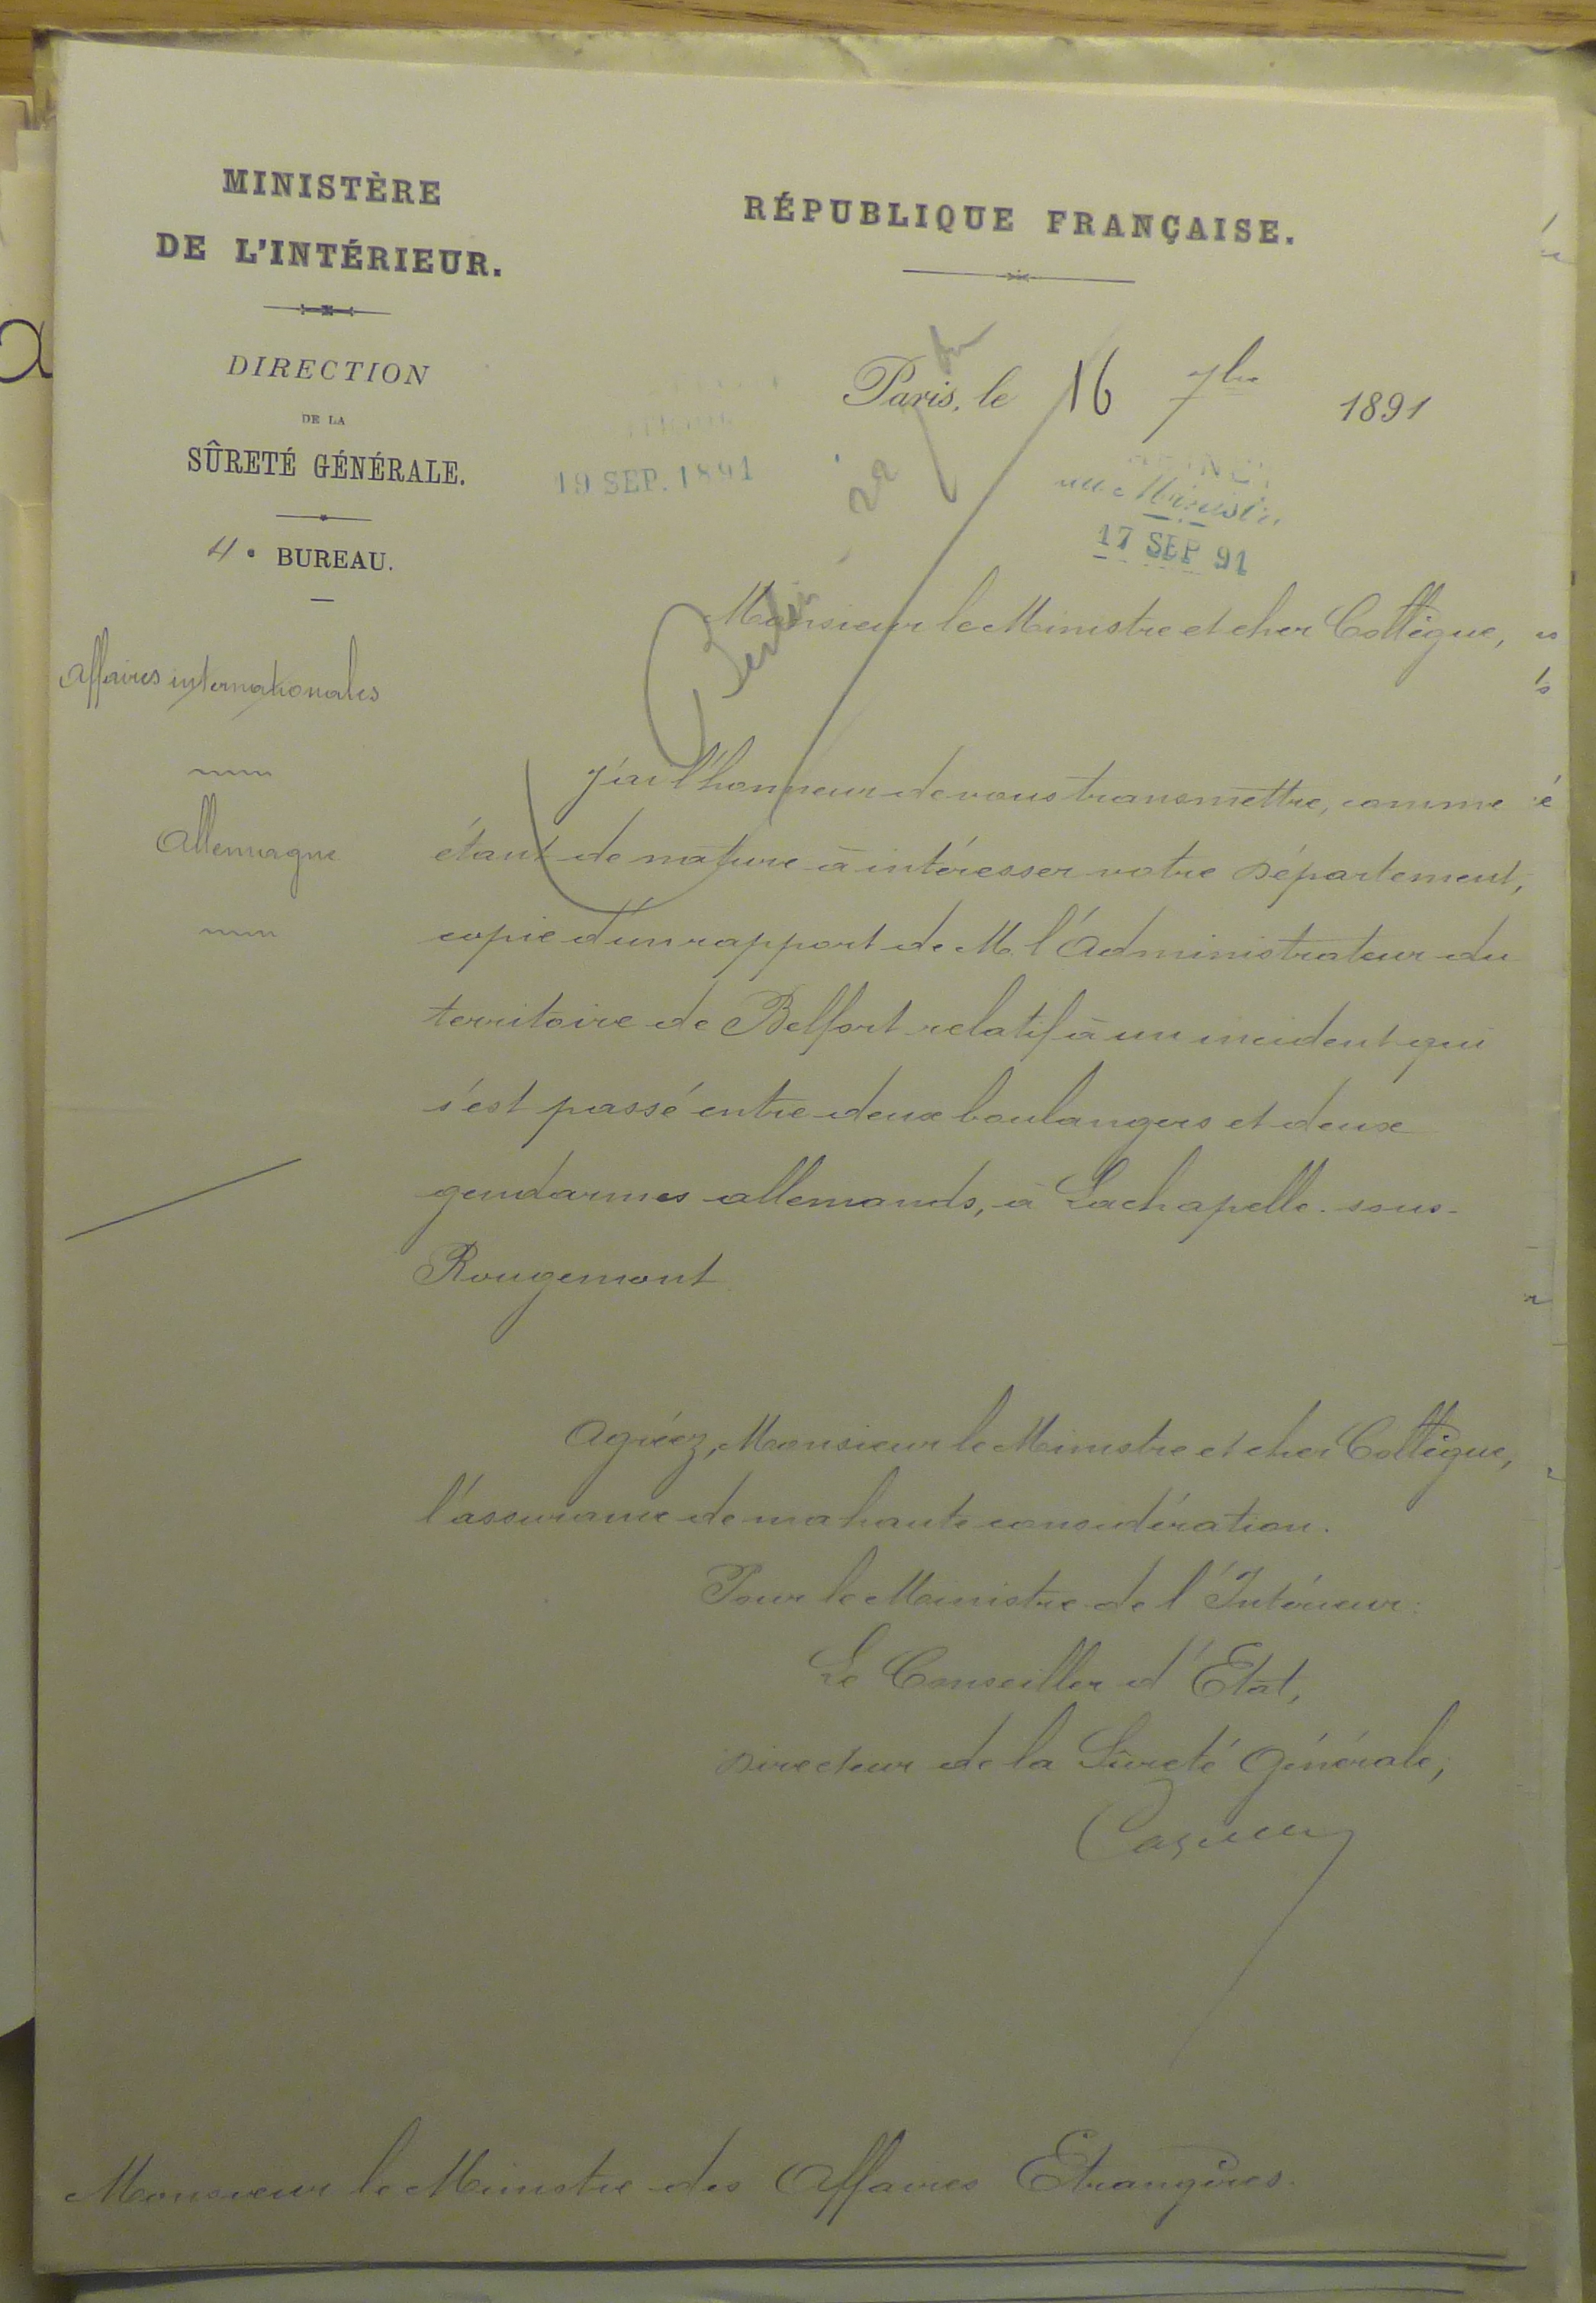 MINISTÈRE
DE L'INTÉRIEUR.
DIRECTION
DE LA
SÛRETÉ GÉNÉRALE.
4e BUREAU.
Affaires internationales
Allemagne
RÉPUBLIQUE FRANÇAISE.
Paris, le 16 7bre 1891
19 SEP. 1891
au Ministre
17 SEP 91
Berlin 22
Monsieur le Ministre et cher Collègue,
J'ai l'honneur de vous transmettre, comme
étant de nature à intéresser votre Département,
copie d'un rapport de M. l'Administrateur du
territoire de Belfort relatif à un incident qui
s'est passé entre deux boulangers et deux
gendarmes allemands, à Lachapelle-sous-
Rougemont.
Agréez, Monsieur le Ministre et cher Collègue,
l'assurance de ma haute considération.
Pour le Ministre de l'Intérieur:
Le Conseiller d'Etat,
Directeur de la Sûreté Générale,
Monsieur le Ministre des Affaires Etrangères.